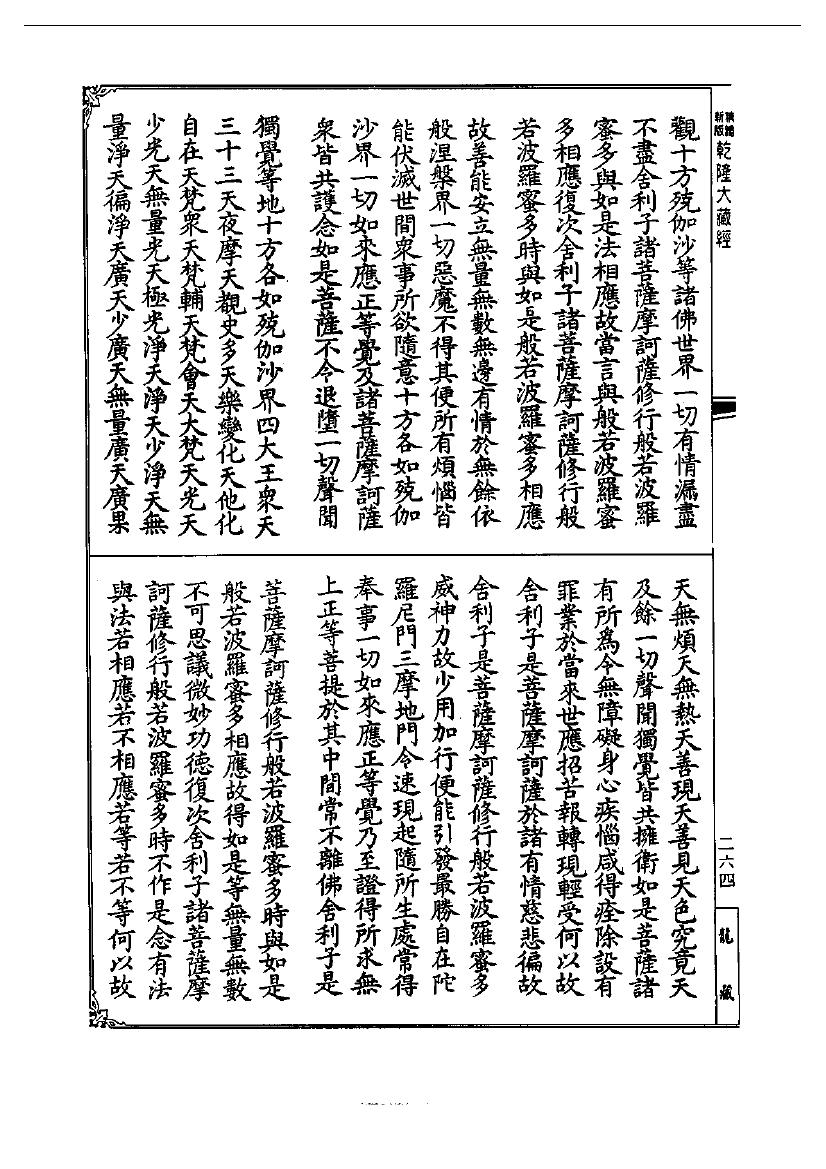 觀十方殑伽沙等諸佛世界一切有情漏盡
不盡舍利子諸菩薩摩訶薩修行般若波羅
蜜多與如是法相應故當言與般若波羅蜜
多相應復次舍利子諸菩薩摩訶薩修行般
若波羅蜜多時與如是般若波羅蜜多相應
故善能安立無量無數無邊有情於無餘依
般涅槃界一切惡魔不得其便所有煩惱皆
能伏滅世間衆事所欲隨意十方各如殑伽
沙界一切如來應正等覺及諸菩薩摩訶薩
衆皆共護念如是菩薩不令退墮一切聲聞
獨覺等地十方各如殑伽沙界四大王衆天
三十三天夜摩天覩史多天樂變化天他化
自在天梵衆天梵輔天梵會天大梵天光天
少光天無量光天極光淨天淨天少淨天無
量淨天徧淨天廣天少廣天無量廣天廣果
天無煩天無熱天善現天善見天色究竟天
及餘一切聲聞獨覺皆共擁衛如是菩薩諸
有所爲令無障礙身心疾惱咸得痊除設有
罪業於當來世應招苦報轉現輕受何以故
舍利子是菩薩摩訶薩於諸有情慈悲徧故
舍利子是菩薩摩訶薩修行般若波羅蜜多
威神力故少用加行便能引發最勝自在陀
羅尼門三摩地門令速現起隨所生處常得
奉事一切如來應正等覺乃至證得所求無
上正等菩提於其中間常不離佛舍利子是
菩薩摩訶薩修行般若波羅蜜多時與如是
般若波羅蜜多相應故得如是等無量無數
不可思議微妙功德復次舍利子諸菩薩摩
訶薩修行般若波羅蜜多時不作是念有法
與法若相應若不相應若等若不等何以故
新版
乾隆大藏經
二六四
龍藏